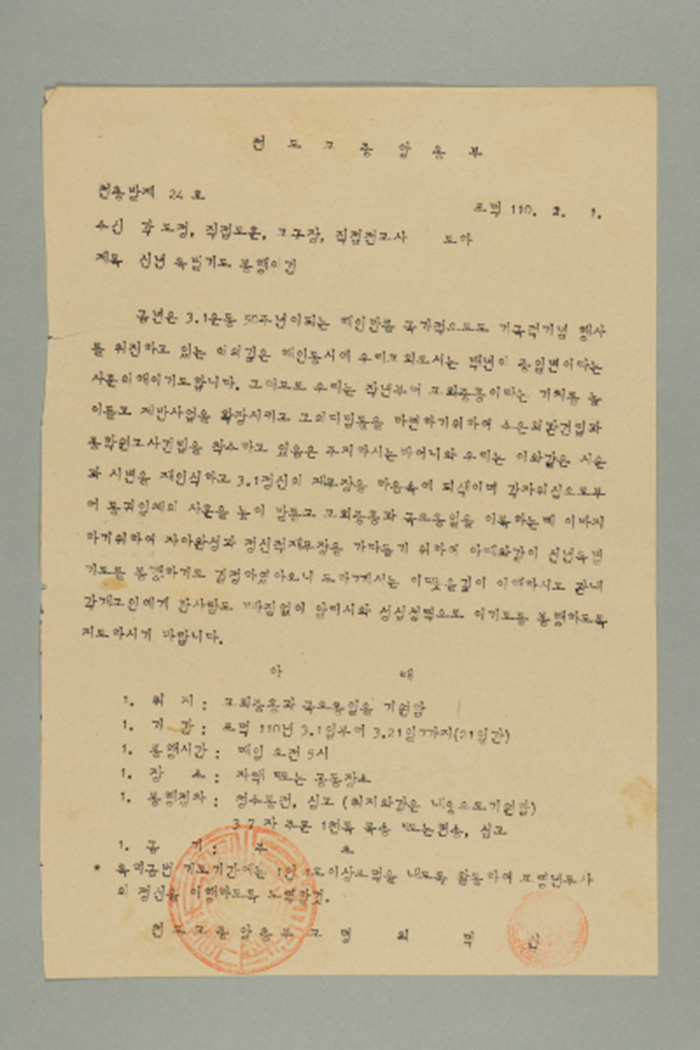 천 도 교 중 앙 총 부
천총발제 24 호
포덕 110. 2. 1.
수신 각 도정, 직접도훈, 교구장, 직접전교사 토하
제목 신년 특별기도 봉행이건
금년은 3.1운동 50주년이되는 해인만큼 국가적으로도 거국적기념 행사
를 추진하고 있는 이의깊은 해인동시에 우리교회로서는 백년이 종일변이라는
사훈의해이기도합니다. 그러므로 우리는 작년부터 교회중흥이라는 기치를 높
이들고 제반사업을 확장시키고 그의디딤돌을 마련하기위하여 수운회관건립과
종학원교사건립을 착수하고 있음은 주지하시는바어니와 우리는 이와같은 시운
과 시변을 재인식하고 3.1정신의 재무장을 마음속에 되색이며 각자위심으로부
터 동귀일체의 사훈을 높이 받들고 교회중흥과 국토통일을 이룩하는데 이바지
하기위하여 자아완성과 정신적재무장을 가다듬기 위하여 아래와같이 신년특별
기도를 봉행하기로 결정하였아오니 도하게서는 이뜻을깊이 이해하시고 관내
각개교인에게 한사람도 빠짐없이 알리시와 성심성력으로 이기도를 봉행하도록
지도하시기 바랍니다.
아 래
1. 취 지 : 교회중흥과 국토통일을 기원함
1. 기 간 : 포덕 110년 3.1일부터 3.21일까지(21일간)
1. 봉행시간 : 매일 오전 5시
1. 장 소 : 자택 또는 공동장소
1. 봉행절차 : 청수봉전, 심고 (취지와같은 내용으로기원함)
3.7 자 주문 1천독 묵송 또는현송, 심고
1. 공 기 :
* 특히금번 기도기간에는 1인 1포이상포덕을 내도록 활동하여
의 정신을 이행하도록 노력할것.
천 도 교 중 앙 총 부 교 령 최 덕 신